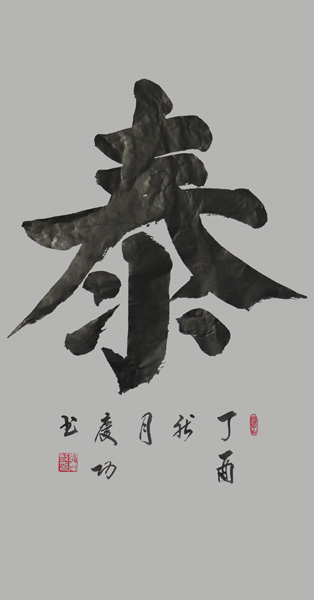 泰
丁酉
秋
月
慶功
书